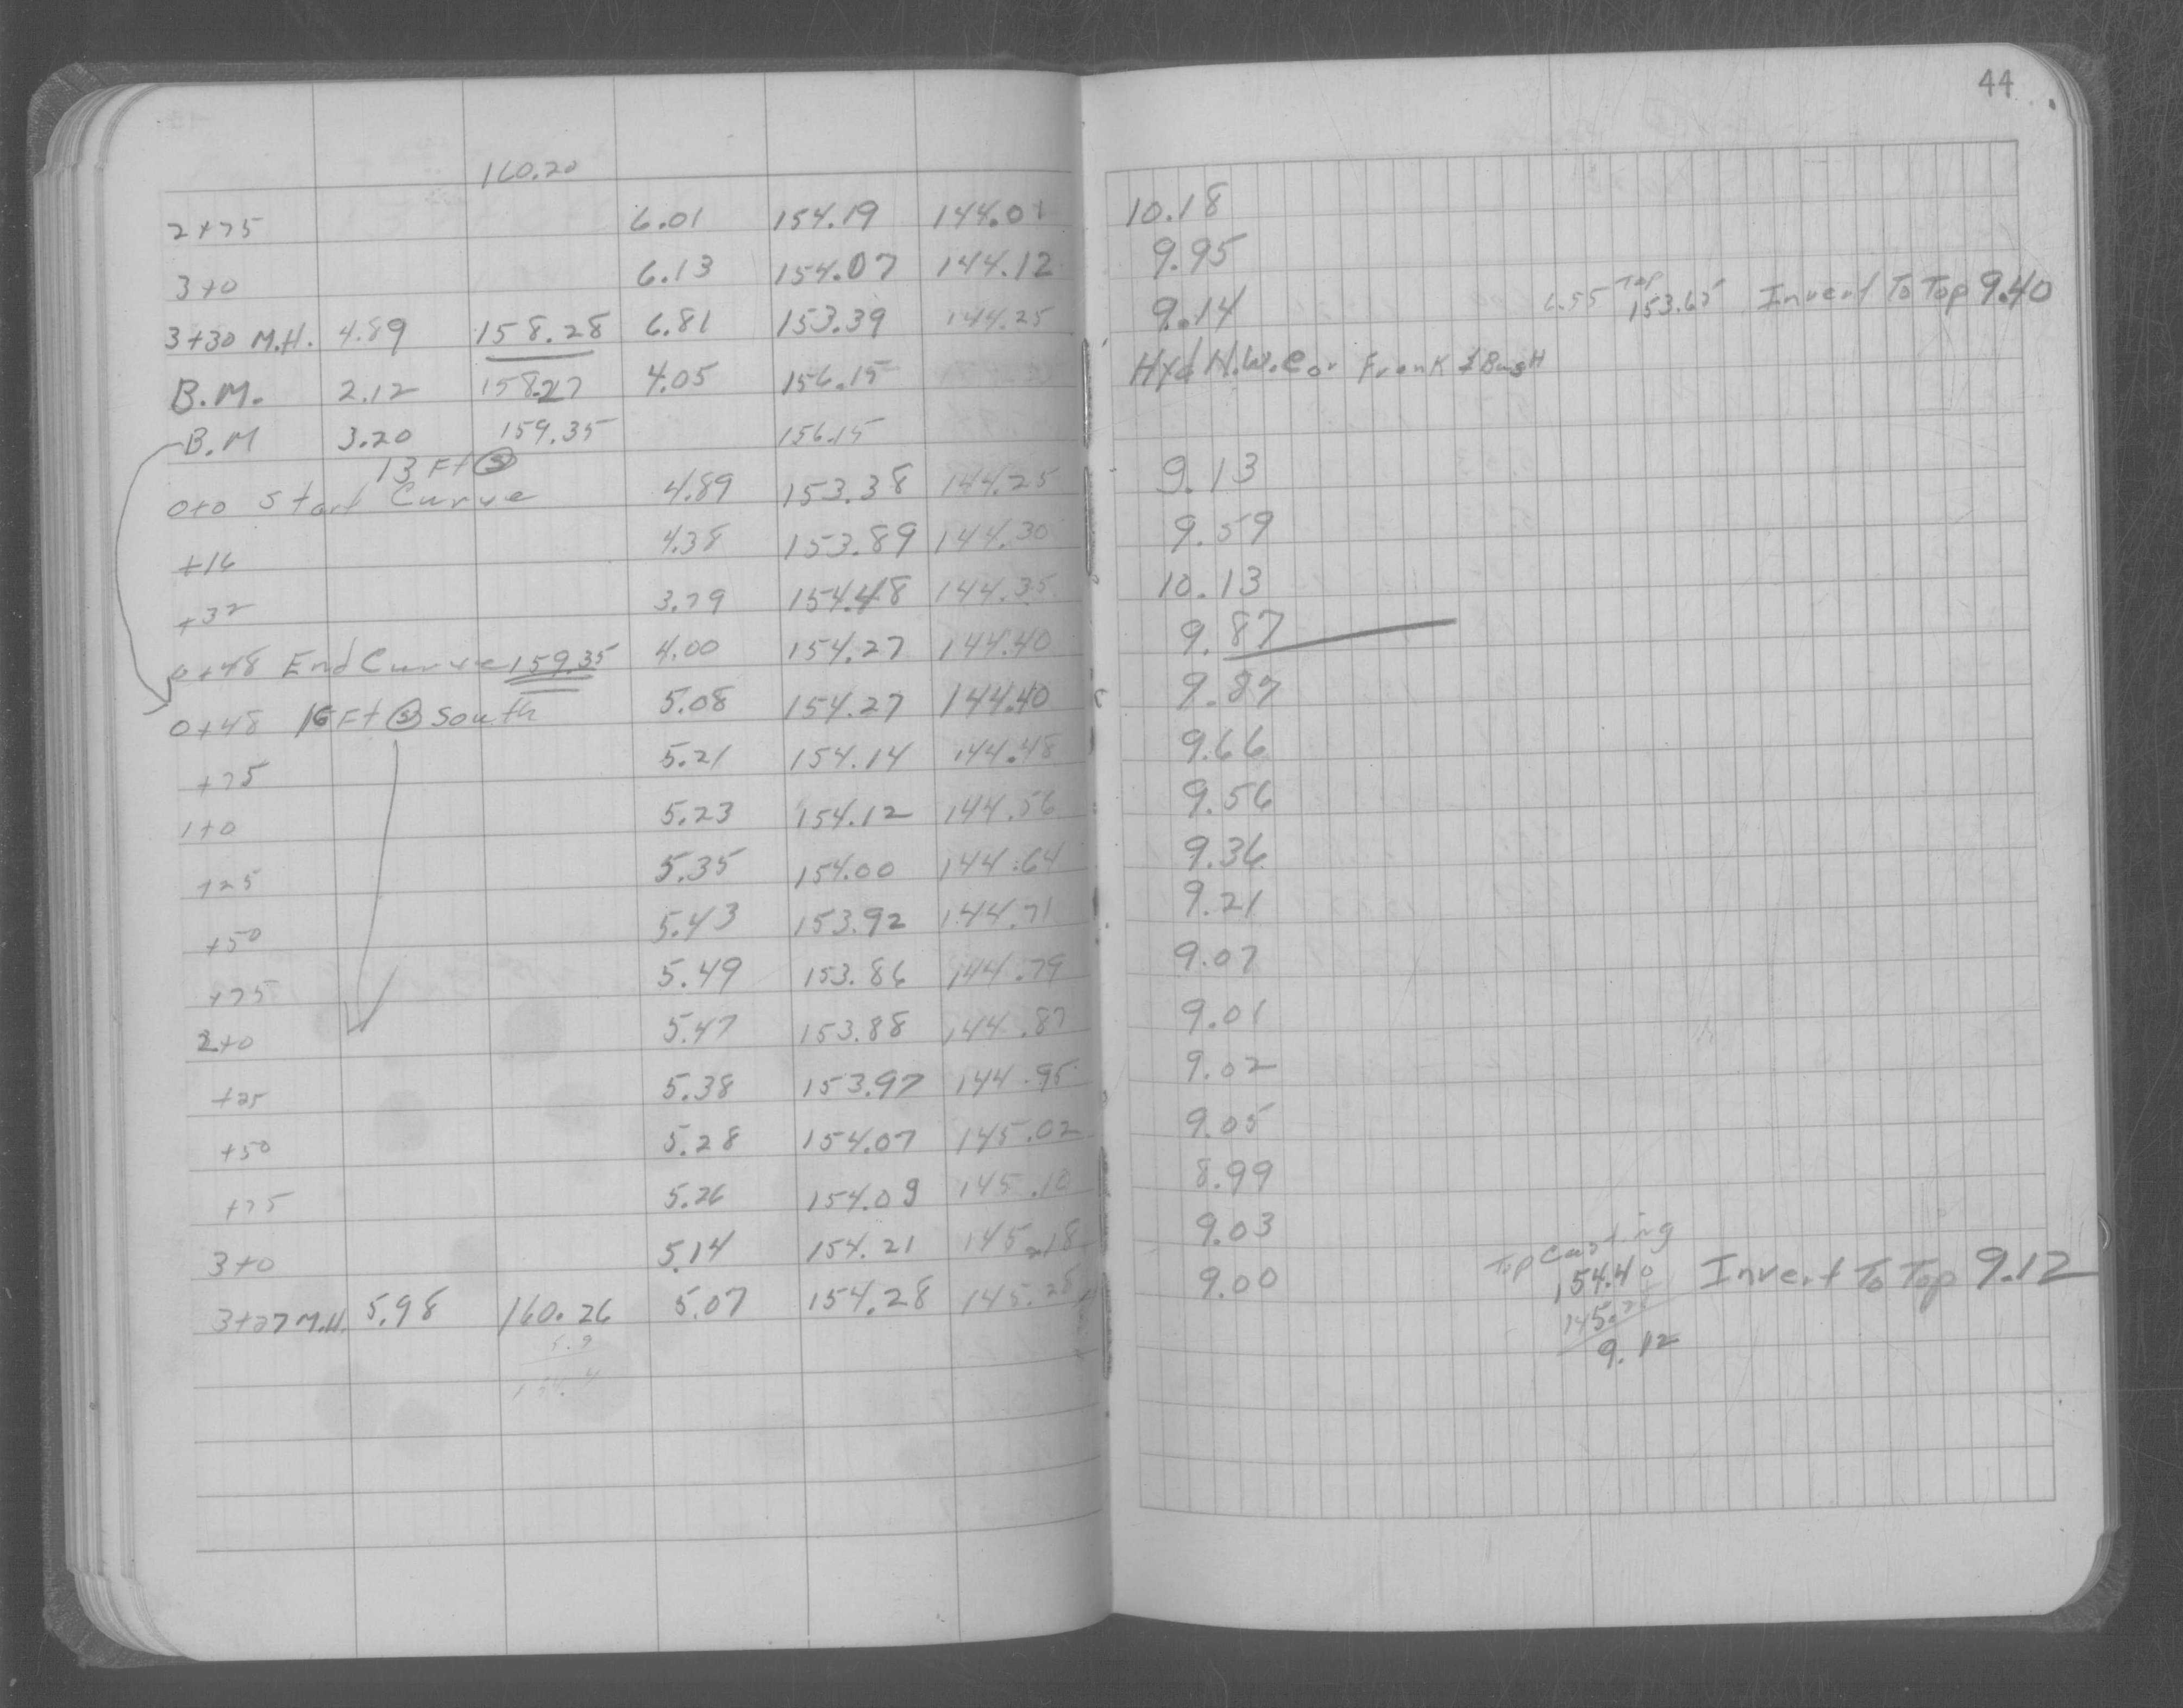 44
160.20
2+75 6.01 154.19 144.01 10.18
3+0 6.13 154.07 144.12 9.95
3+30 M.H. 4.89 158.28 6.81 153.39 144.25 9.14 6.55 Top 153.65 Invert To Top 9.40
B.M. 2.12 158.27 4.05 156.15 Hyd N.W. Cor Frank & Bush
B.M 3.20 159.35 156.15
13 Ft S
0+0 Start Curve 4.89 153.38 144.25 9.13
+16 4.38 153.89 144.30 9.59
+32 3.79 154.48 144.35 10.13
0+48 End Curve 159.35 4.00 154.27 144.40 9.87
0+48 16 Ft S South 5.08 154.27 144.40 9.87
+75 5.21 154.14 144.48 9.66
1+0 5.23 154.12 144.56 9.56
+25 5.35 154.00 144.64 9.36
+50 5.43 153.92 144.71 9.21
+75 5.49 153.86 144.79 9.07
2+0 5.47 153.88 144.87 9.01
+25 5.38 153.97 144.95 9.02
+50 5.28 154.07 145.02 9.05
+75 5.26 154.09 145.10 8.99
3+0 5.14 154.21 145.18 9.03
3+27 M.H. 5.98 160.26 5.07 154.28 145.28 9.00
Top Casting
154.40 Invert To Top 9.12
145.28
9.12